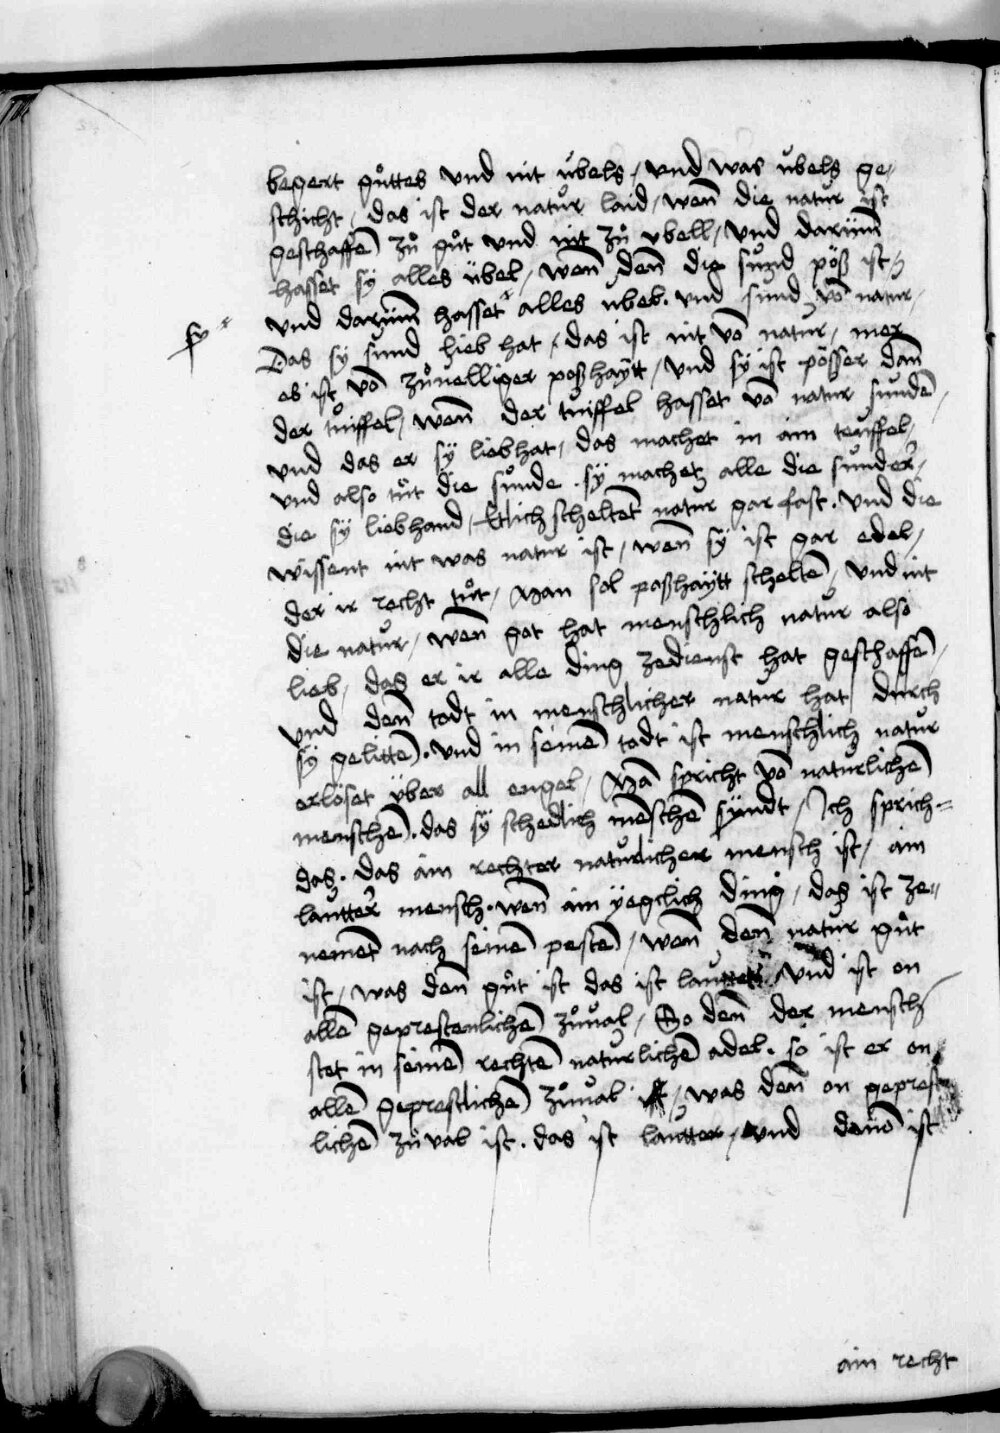 begert gůttes vnd nit ůbels / vnd was ůbels ge/
schicht / das ist der natur laid / wen̄ die natur ist
geschaffē zů gůt vnd nit zů vbell / vnd darūm
hasset sy alles übel / wen̄ den̄ die sünd pöß ist /
vnd darūm hasset alles ubel. vnd sund vō natur /
sy
Das sy sund lieb hat / das ist nit vō natur / mer
es ist vō zůuelliger poßhaÿtt / vnd sy ist pösser dan̄
der tuiffel / wen̄ der tuiffel hasset vō natur sundē /
vnd das er sÿ liebhat / das machet in ain teuffel /
vnd also tůt die sunde . sÿ machet alle die sunder /
die sÿ liebhand / Etlich scheltēt natur gar fast . vnd die
wissent nit was natur ist / wen̄ sÿ ist gar edel /
der ir recht tůt / Man sol poßhaÿtt scheltē / vnd nit
die natur / wen̄ got hat menschlich natur also
lieb / das er ir alle ding zedienst hat geschaffē /
vnd den̄ todt in menschlicher natur hat durch
sy gelittē . vnd in seinē todt ist menschlich natur
erlöset ÿber all engel / Mā spricht vō naturlichē
menschē . das sÿ schedlich mēschē sÿndt / Ich sprich=
das . das ain rechter naturlicher mensch ist / ain
lautter mensch . wen̄ ain ÿegclich ding / das ist ze=
nemēt nach seinē pestē / wen̄ den̄ natur gůt
ist / was den̄ gůt ist das ist lautter vnd ist on
allē geprestenlichē zůual / So den̄ der mensch
stet in seinē rechtē naturlichē adel . so ist er on
allē geprestlichē zůual / was den̄ on geprest
lichē zůual ist . das ist lautter / vnd den̄ō ist
ain recht